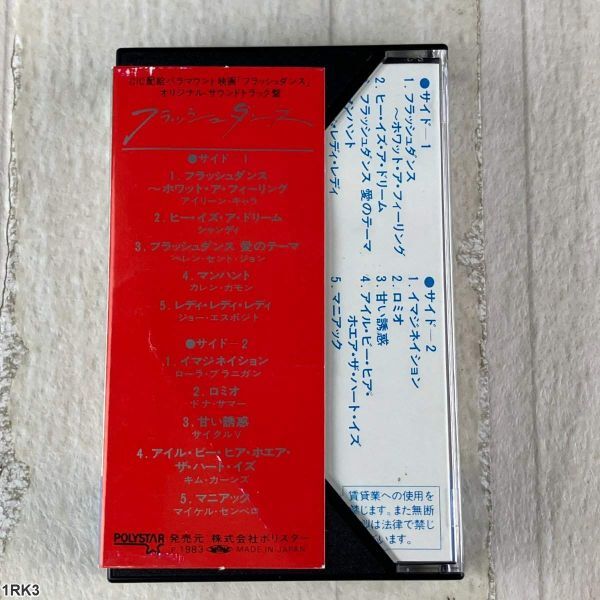 CIC配給・パラマウント映画「フラッシュダンス」
オリジナル・サウンドトラック盤
フラッシュダンス
●サイド―1
1. フラッシュダンス
〜ホワット・ア・フィーリング
アイリーン・キャラ
2. ヒー・イズ・ア・ドリーム
シャンディ
3. フラッシュダンス 愛のテーマ
ヘレン・セント・ジョン
4. マンハント
カレン・カモン
5. レディ・レディ・レディ
ジョー・エスポジト
●サイド―2
1. イマジネイション
ローラ・ブラニガン
2. ロミオ
ドナ・サマー
3. 甘い誘惑
サイクルV
4. アイル・ビー・ヒア・ホエア・
ザ・ハート・イズ
キム・カーンズ
5. マニアック
マイケル・センベロ
POLYSTAR 発売元 株式会社ポリスター
℗ 1983 MADE IN JAPAN
●サイド―1
1. フラッシュダンス
〜ホワット・ア・フィーリング
2. ヒー・イズ・ア・ドリーム
フラッシュダンス 愛のテーマ
マンハント
レディ・レディ
●サイド―2
1. イマジネイション
2. ロミオ
3. 甘い誘惑
4. アイル・ビー・ヒア・
ホエア・ザ・ハート・イズ
5. マニアック
賃貸業への使用を
じます。また無断
は法律で禁じ
います。
1RK3